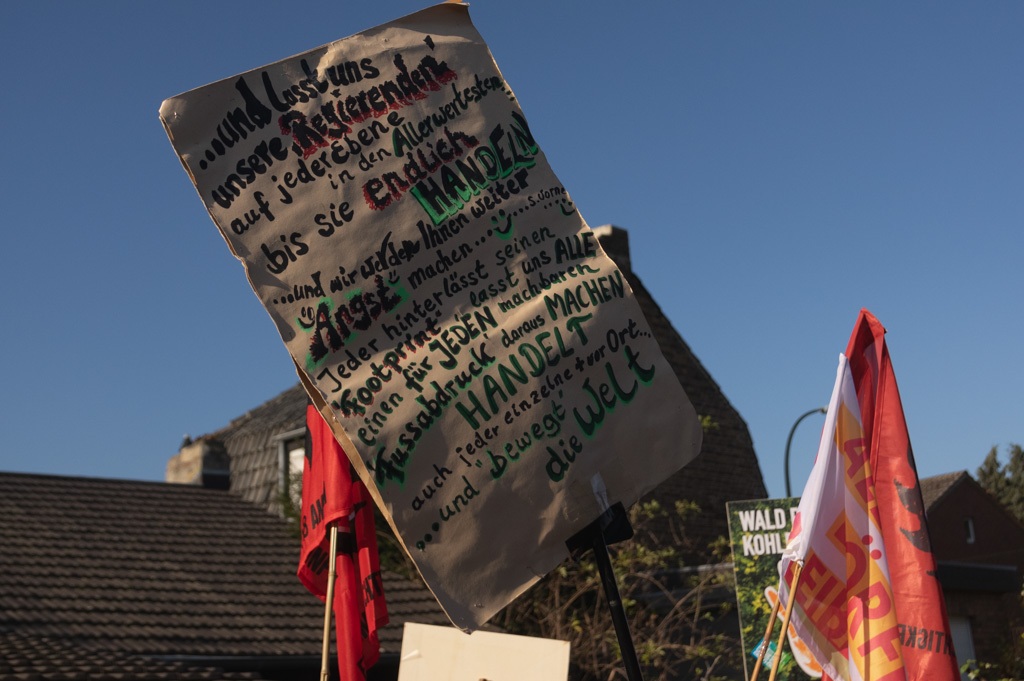 ...und lasst uns
unsere Regierenden
auf jeder Ebene
in den Allerwertesten
bis sie endlich
HANDELN
...und wir werden Ihnen weiter
Angst machen...
Jeder hinterlässt seinen
"Footprint" lasst uns ALLE
einen für JEDEN machbaren
Fussabdruck daraus MACHEN
HANDELT
auch jeder einzelne + vor Ort...
...und "bewegt"
die Welt
WALD
KOHL